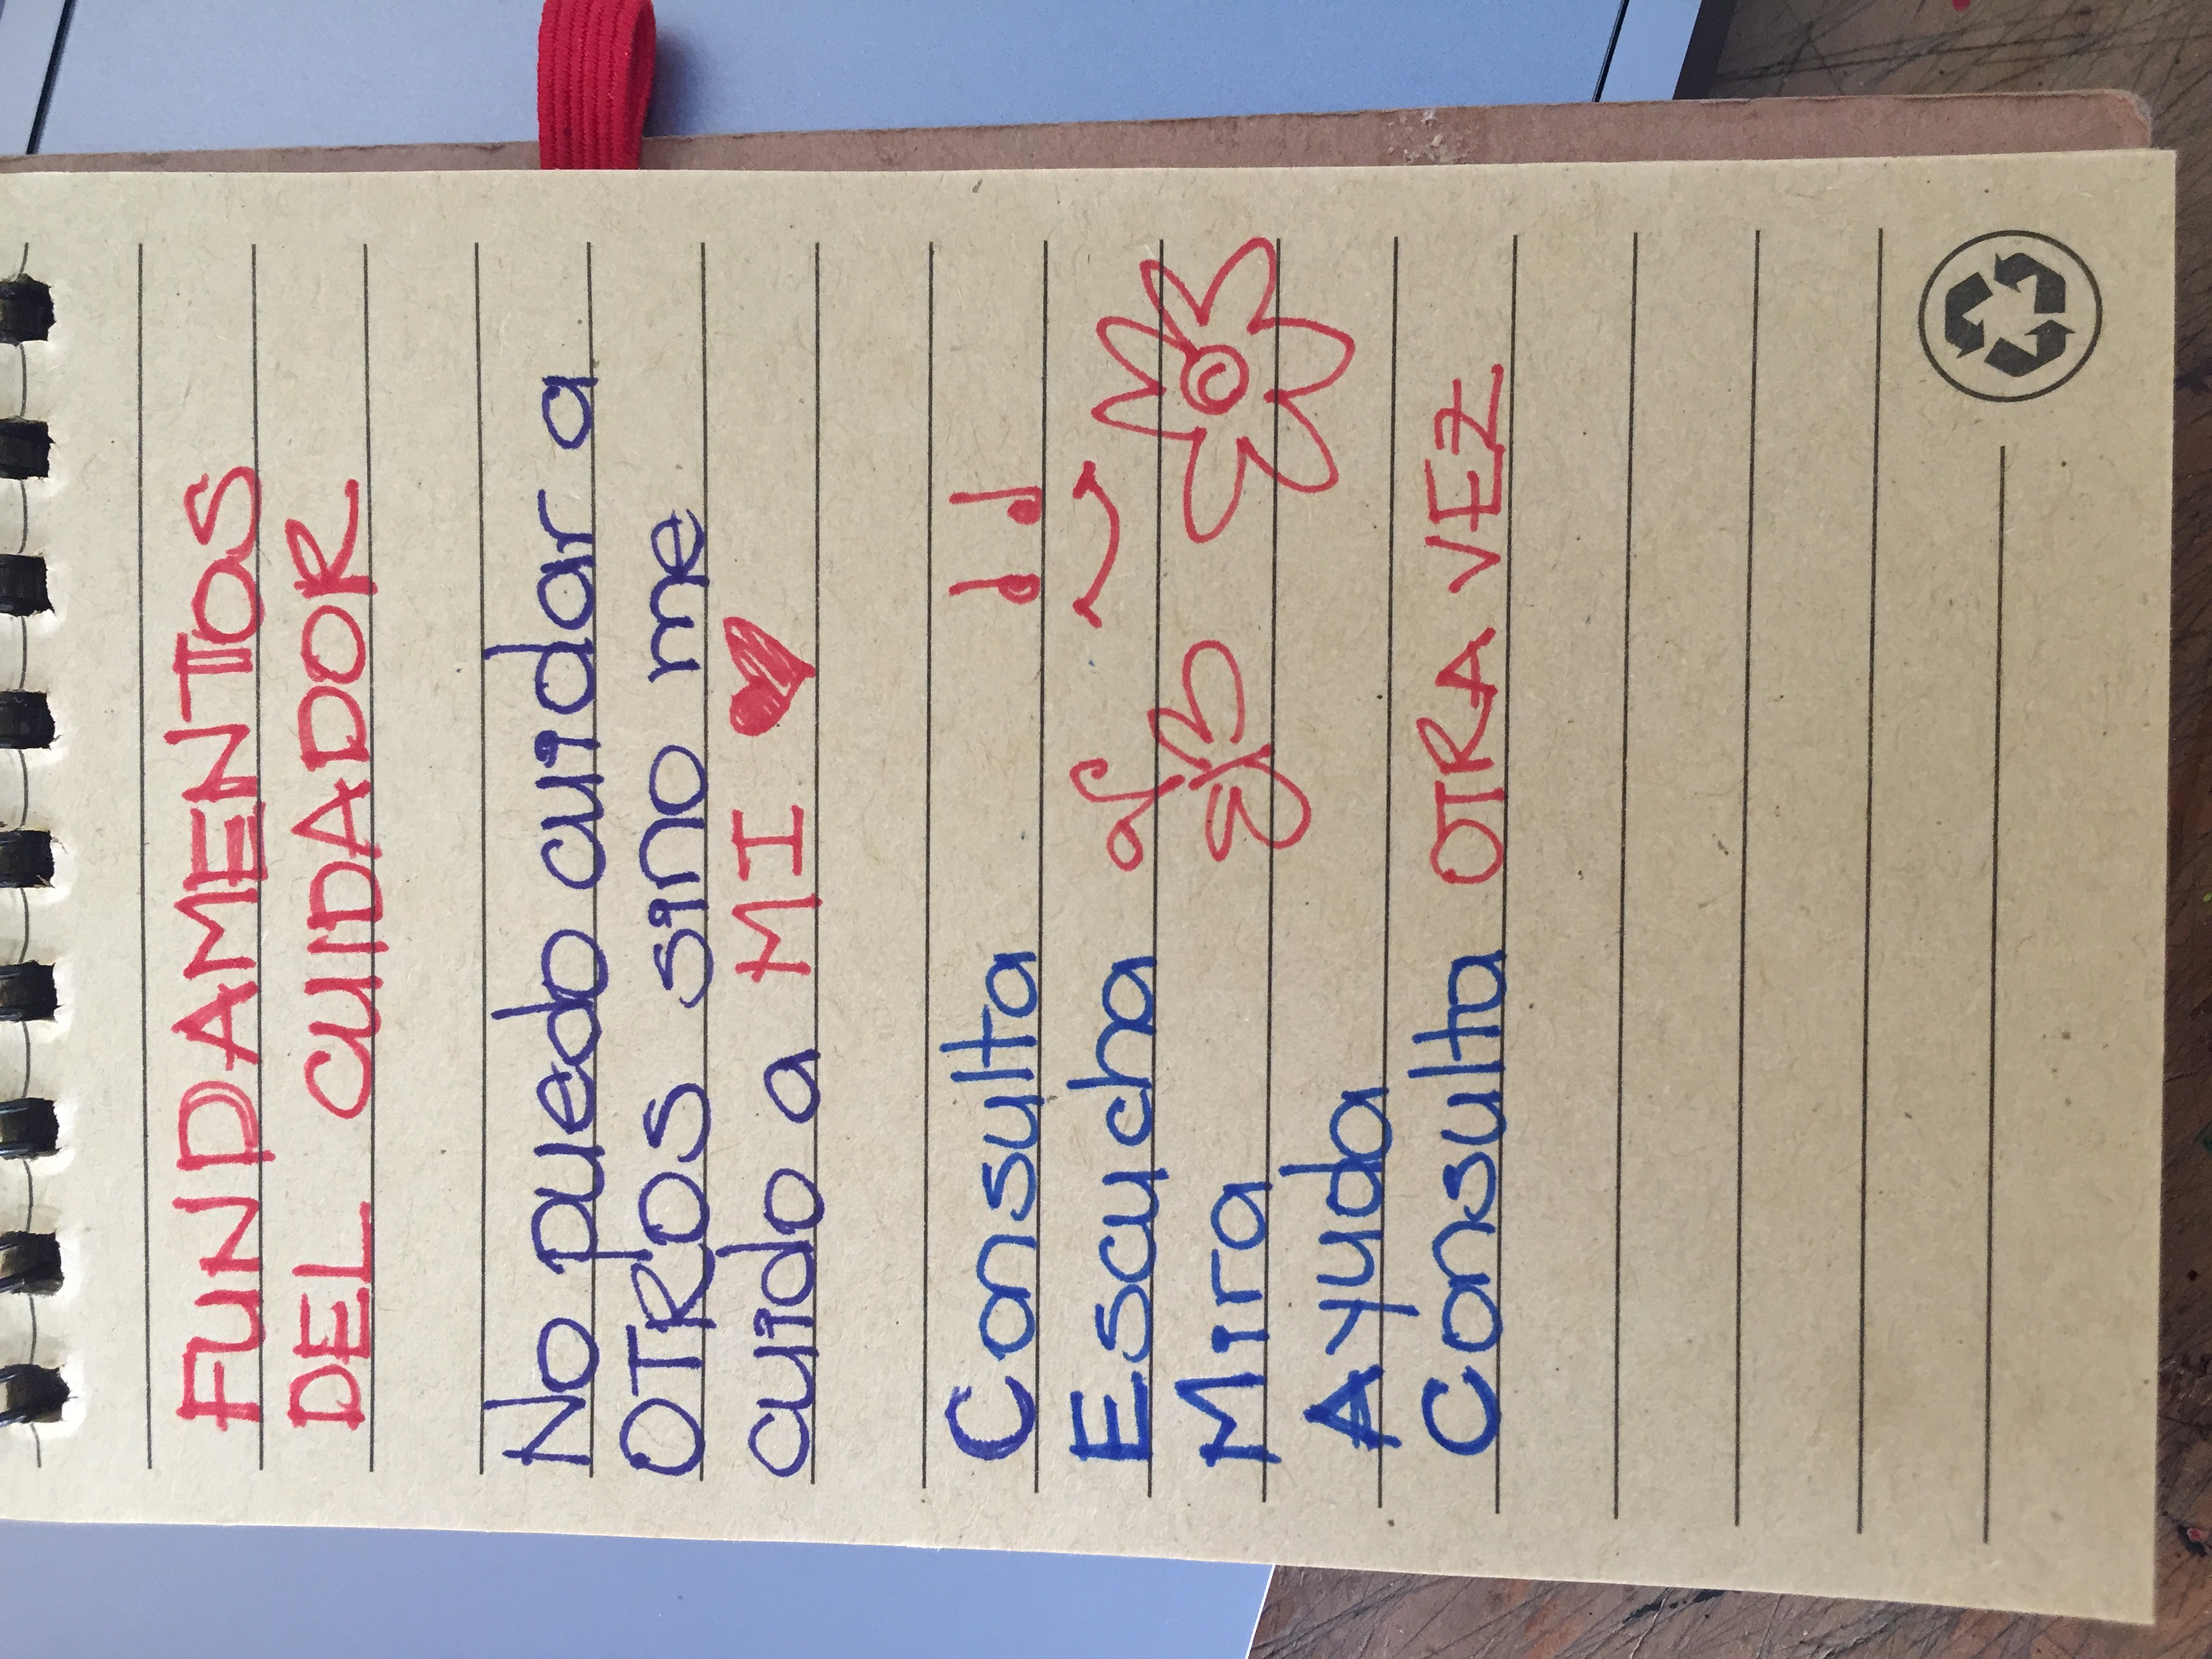 FUNDAMENTOS
DEL CUIDADOR
No puedo cuidar a
OTROS sino me
cuido a MI
Consulta
Escucha
Mira
Ayuda
Consulta OTRA VEZ